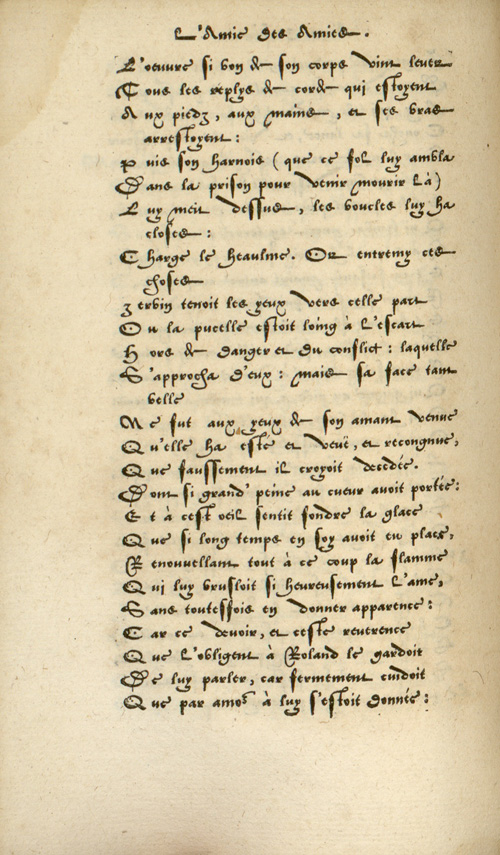 L'Amie des Amies.
L'oeuure si bon de son corps vint leuer
Tous les replys de corde qui estoyent
Aux piedz, aux mains, et ses bras
arrestoyent:
Puis son harnois (que ce fol luy ambla
Dans la prison pour venir mourir là)
Luy meit dessus, les boucles luy ha
closes:
Charge le heaulme. Or entremy ces
choses
Zerbin tenoit les yeux vers celle part
Ou la pucelle estoit loing à l'escart
Hors de danger et du conflict: laquelle
S'approcha d'eux: mais sa face tant
belle
Ne fut aux yeux de son amant venue
Qu'elle ha esté et veuë, et recongnue,
Que faussement il croyoit decedée.
Dont si grand' peine au cueur auoit portée:
Et à cest oeil sentit fondre la glace
Que si long temps en soy auoit eu place,
Renouuellant tout à ce coup la flamme
Qui luy brusloit si heureusement l'ame,
Sans toutesfois en donner apparence:
Car ce deuoir, et ceste reuerence
Que l'obligent à Roland le gardoit
De luy parler, car fermement cuidoit
Que par amor à luy s'estoit donnée: